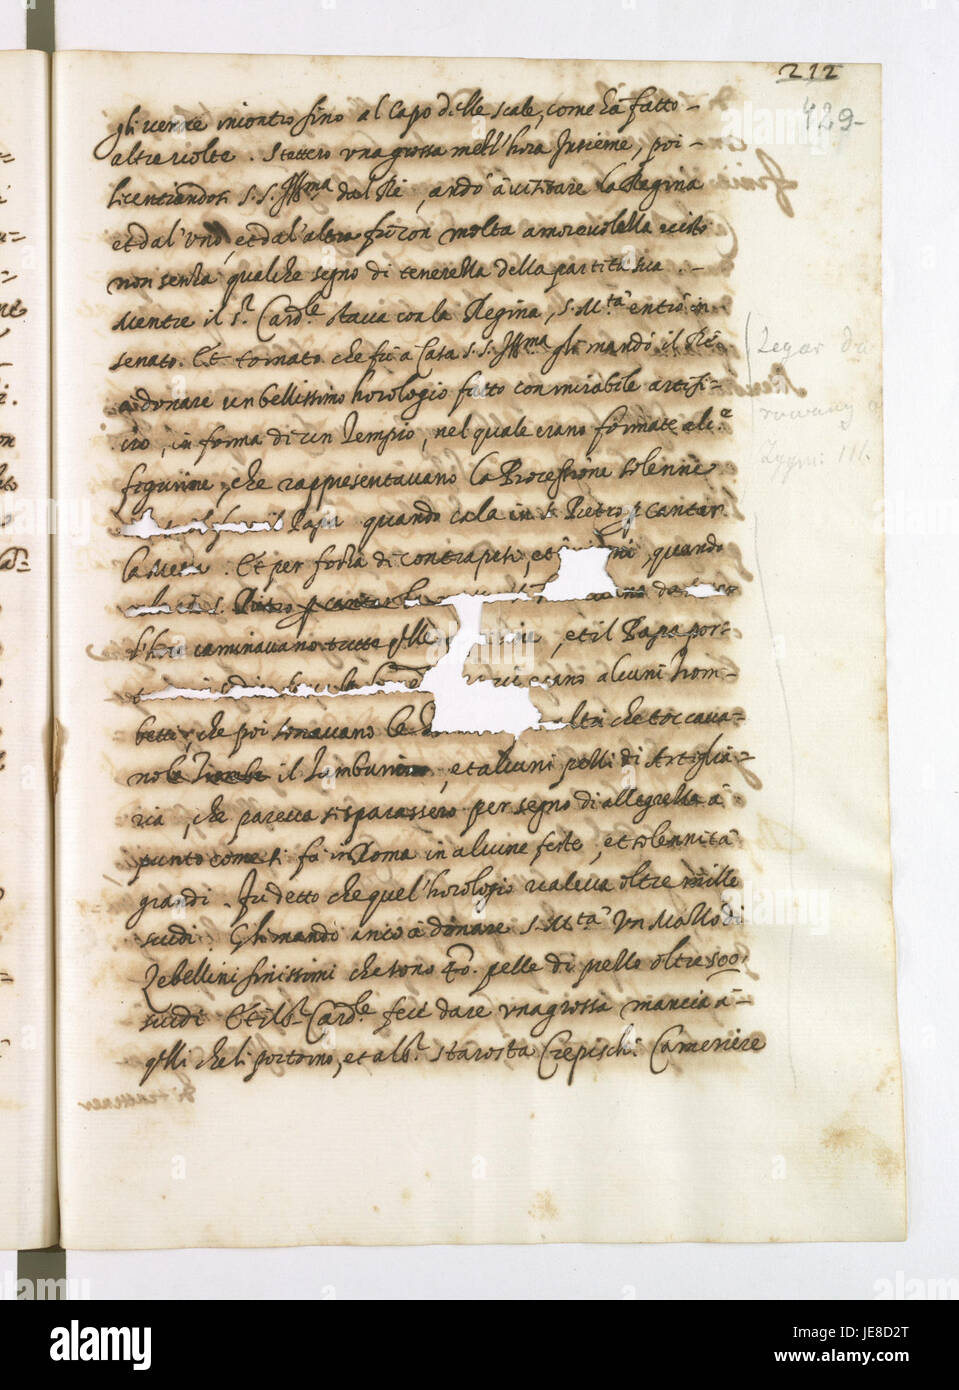 212
429-
gli venne incontro fino al Capo delle scale, come hà fatto -
altre volte. Stettero una grossa mezz'hora Insieme, poi -
licentiandosi S.S. Ill^ma dal Rè, andò à visitare la Regina
et dal'uno, et dal'altra fù con molta amorevolezza visto
non senza qualche segno di tenerezza della partita sua. -
Mentre il S.r Card.le stava con la Regina, S. M.tà entrò in
senato. Et tornato che fù à Casa S.S. Ill^ma gli mandò il Rè
à donare un bellissimo horologio fatto con mirabile artifi-
cio, in forma di un Tempio, nel quale erano formate alc.e
figurine, che rappresentavano la Processione solenne
Papa quando cala in S. Pietro p cantar
la Messa. Et per forza di contrapesi, et quando
S. Pietro p cantar la
l'hore caminavano tutte q.lle et il Papa por-
erano alcuni Trom-
betti, che poi sonavano le altri che toccava-
no le Trombe il Tamburino, et alcuni pezzi di Artiglia-
ria, che pareva si sparassero per segno di allegrezza à
punto come si fà in Roma in alcune feste, et solennità
grandi. Fu detto che quel'horologio valeva oltre mille
scudi. Gli mandò anco à donare S. M.tà un Mazzo di
Zebellini finissimi che sono 40. pelle di pezzo oltre 500
scudi Et il S.r Card.le feci dare una grossa mancia à -
q.lli che li portorno, et al S.r Starosta Crepischi Cameriere
di trattener
Zegar da
rowany od
Zygm: III.
alamy
Image ID: JE8D2T
www.alamy.com